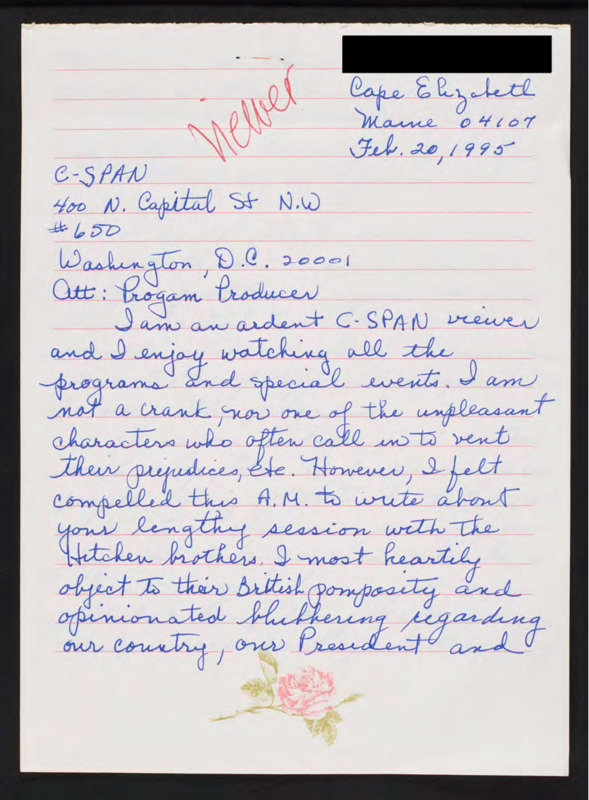 Viewer
Cape Elizabeth
Maine 04107
Feb. 20, 1995
C-SPAN
400 N. Capital St N.W
#650
Washington, D.C. 20001
Att: Progam Producer
I am an ardent C-SPAN viewer
and I enjoy watching all the
programs and special events. I am
not a crank, nor one of the unpleasant
characters who often call in to vent
their prejudices, etc. However, I felt
compelled this A.M. to write about
your lengthy session with the
Hitchen brothers. I most heartily
object to their British pomposity and
opinionated blubbering regarding
our country, our President and